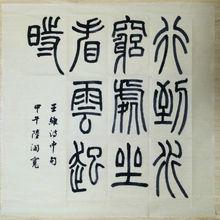 行到水
窮處坐
看雲起
時
王維詩中句
甲午陸